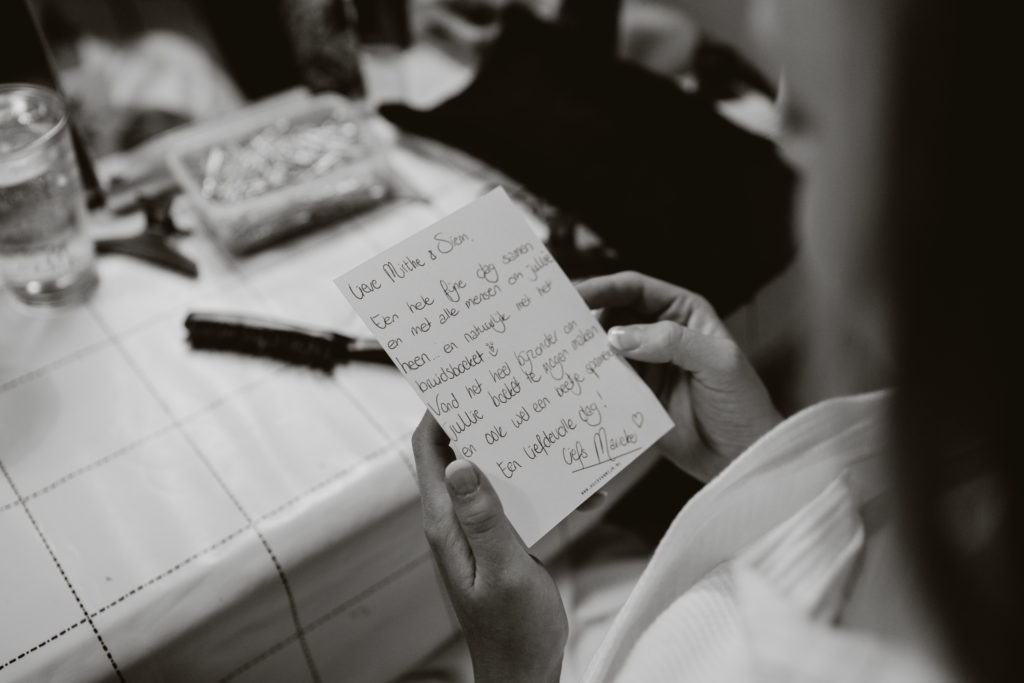 Lieve Mirthe & Siem,
Een hele fijne dag samen
en met alle mensen om jullie
heen... en natuurlijk met het
bruidsboeket
Vond het heel bijzonder om
jullie boeket te mogen maken
en ook wel een beetje spannend
Een liefdevolle dag!
Liefs Marieke ♡